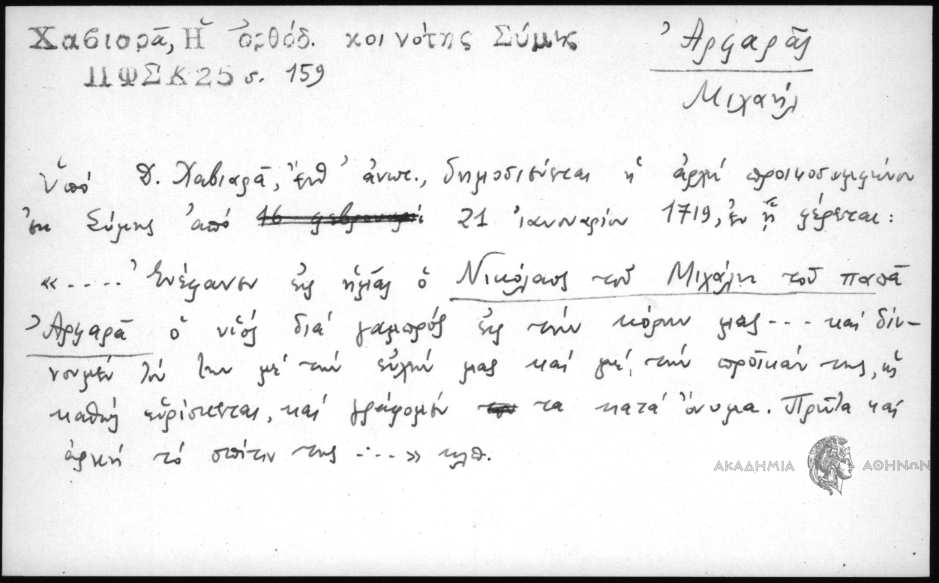 Χαβιαρᾶ, Ἡ ὀρθόδ. κοινότης Σύμης
ΠΦΣΚ25 σ. 159
Ἀργαρᾶς
Μιχαήλ
Ὑπό Δ. Χαβιαρᾶ, ἔνθ' ἀνωτ., δημοσιεύεται ἡ ἀρχή προικοσυμφώνου
ἐκ Σύμης ἀπό 21 ἰανουαρίου 1719, ἐν ᾗ φέρεται:
«.... Ἐνέφανεν εἰς ἡμᾶς ὁ Νικόλαος τοῦ Μιχάλη τοῦ παπᾶ
Ἀργαρᾶ ὁ υἱός διά γαμπρός εἰς τήν κόρην μας ... καί δίν-
νομέν του την μέ τήν εὐχήν μας καί μέ τήν προῖκάν της, ὡς
καθώς εὑρίσκεται, καί γράφομέν τα κατά ὄνομα. Πρῶτα καί
ἀρχή τό σπίτιν της ....» κλπ.
ΑΚΑΔΗΜΙΑ ΑΘΗΝΩΝ